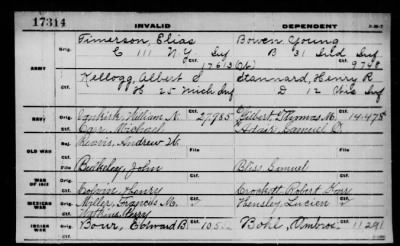 17314 INVALID DEPENDENT
Timerson, Elias Bowen, Young
Orig. C 111 N.Y. Inf B 31 Ind Inf
ARMY Ctf. 17613 Ctf. 9748
Kellogg, Albert S Stannard, Henry R
H 25 Mich Inf D 12 Wis Inf
NAVY Orig. William N. Ctf. 27985 Gilbert, Thomas M. Ctf. 14478
Orig. Carr, Michael Adair, Samuel
OLD WAR Reavis, Andrew W.
File File
Berkeley, John Bliss, Samuel
WAR OF 1812 Orig. Henry Crockett, Robert
MEXICAN WAR Orig. Miller, Francis M. Ctf. Hensley, Lucien Ctf.
Watkins, Perry
INDIAN WAR Orig. Bour, Edward B. Ctf. Bohl, Ambrose Ctf. 11291